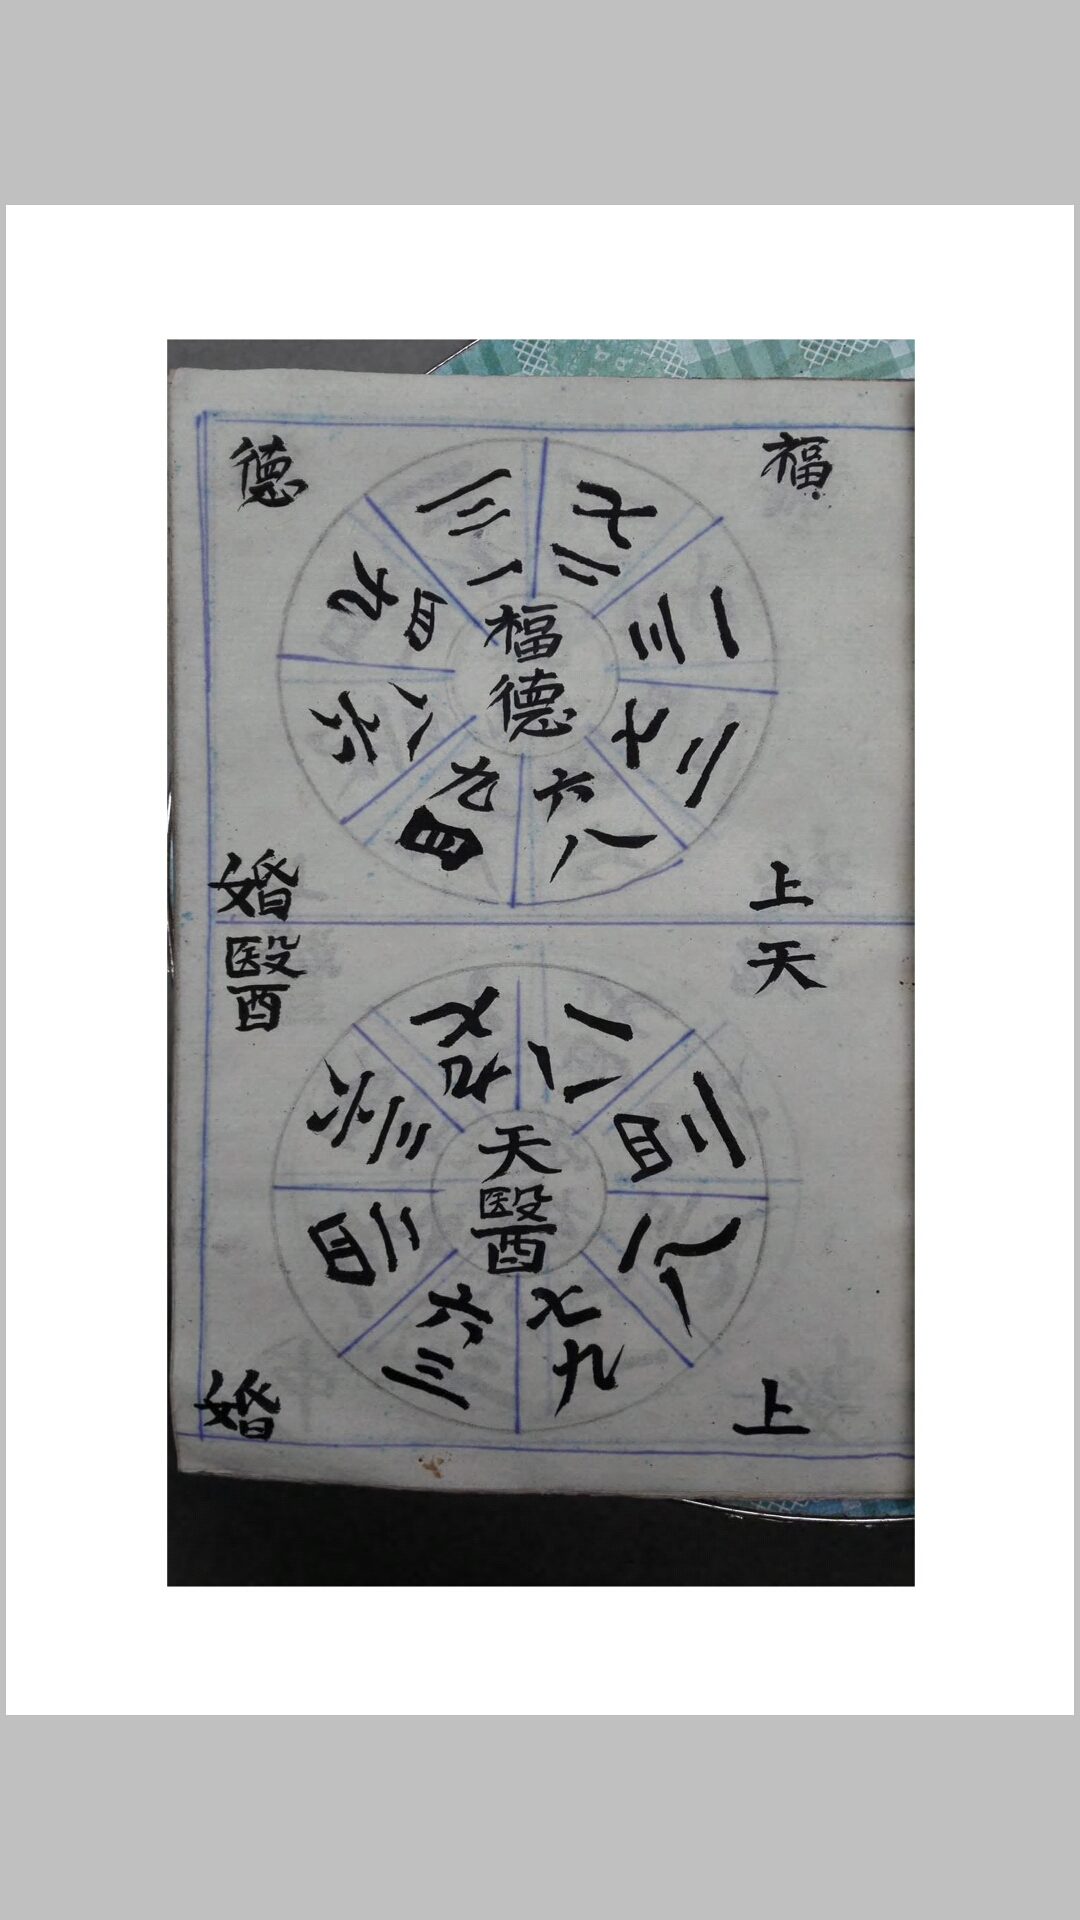 福 德
七二
一三
二七
六八
九四
六八
九四
三一
福德
上 婚
天 醫
一八
二四
八一
七九
六三
四二
六三
七九
天醫
上 婚